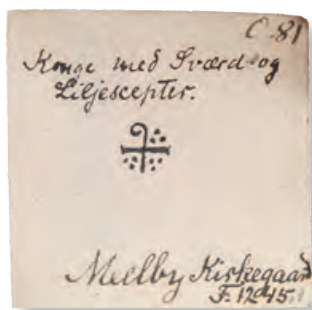 C-81
Konge med Sværd og
Liljescepter.
Melby Kirkegaard
F. 1245.